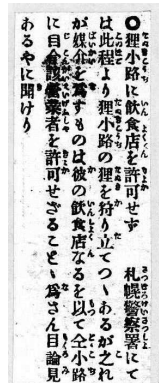 ○狸小路に飲食店を許可せず　札幌警察署にて
は此程より狸小路の狸を狩り立てつゝあるが之れ
が媒介を爲すものは彼の飲食店なるを以て仝小路
に自今該營業者を許可せざることゝ爲さん目論見
あるやに聞けり